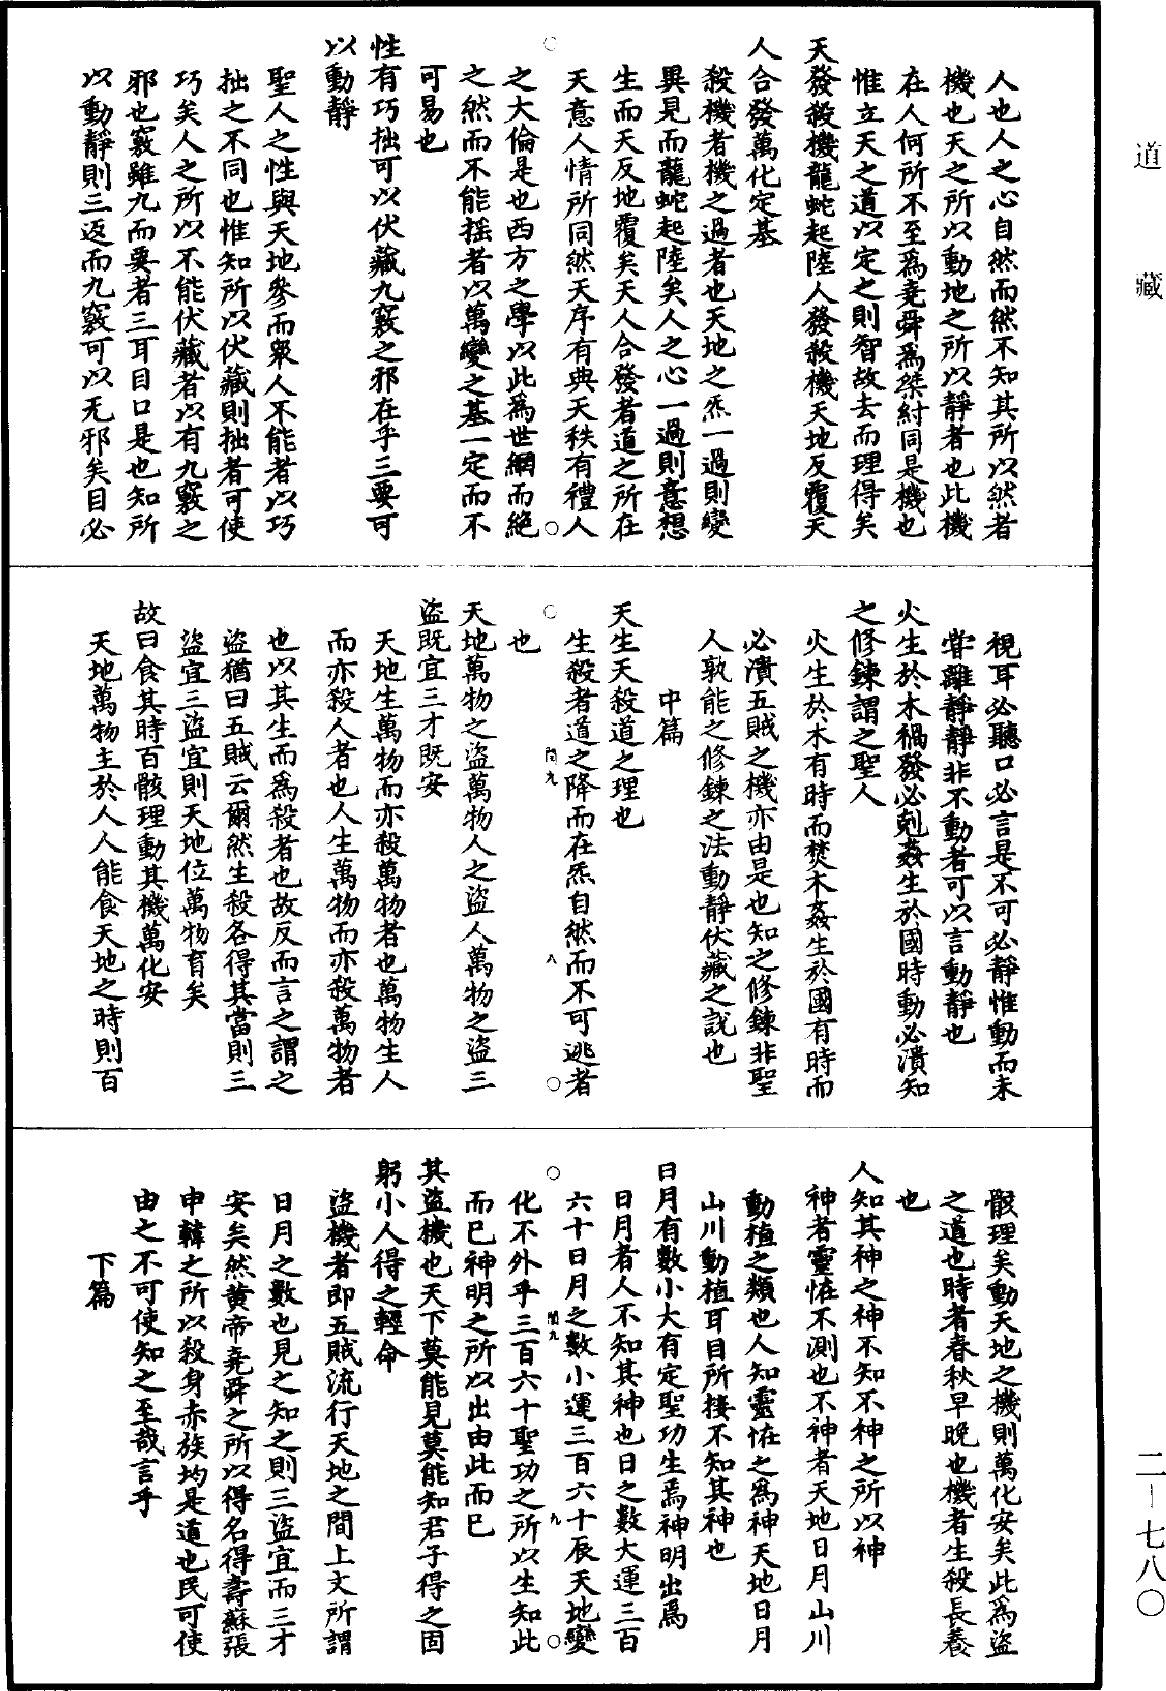 道藏
人也人之心自然而然不知其所以然者
機也天之所以動地之所以靜者也此機
在人何所不至為堯舜為桀紂同是機也
惟立天之道以定之則智故去而理得矣
天發殺機龍蛇起陸人發殺機天地反覆天
人合發萬化定基
殺機者機之過者也天地之炁一過則變
異見而龍蛇起陸矣人之心一過則意想
生而天反地覆矣天人合發者道之所在
天意人情所同然天序有典天秩有禮人
之大倫是也西方之學以此為世網而絕
之然而不能搖者以萬變之基一定而不
可易也
性有巧拙可以伏藏九竅之邪在乎三要可
以動靜
聖人之性與天地參而眾人不能者以巧
拙之不同也惟知所以伏藏則拙者可使
巧矣人之所以不能伏藏者以有九竅之
邪也竅雖九而要者三耳目口是也知所
以動靜則三返而九竅可以无邪矣目必
視耳必聽口必言是不可必靜惟動而未
嘗離靜靜非不動者可以言動靜也
火生於木禍發必剋姦生於國時動必潰知
之修鍊謂之聖人
火生於木有時而焚木姦生於國有時而
必潰五賊之機亦由是也知之修鍊非聖
人孰能之修鍊之法動靜伏藏之說也
中篇
天生天殺道之理也
生殺者道之降而在炁自然而不可逃者
閏九 八
也
天地萬物之盜萬物人之盜人萬物之盜三
盜既宜三才既安
天地生萬物而亦殺萬物者也萬物生人
而亦殺人者也人生萬物而亦殺萬物者
也以其生而為殺者也故反而言之謂之
盜猶曰五賊云爾然生殺各得其當則三
盜宜三盜宜則天地位萬物育矣
故曰食其時百骸理動其機萬化安
天地萬物主於人人能食天地之時則百
骸理矣動天地之機則萬化安矣此為盜
之道也時者春秋早晚也機者生殺長養
也
人知其神之神不知不神之所以神
神者靈恠不測也不神者天地日月山川
動植之類也人知靈恠之為神天地日月
山川動植耳目所接不知其神也
日月有數小大有定聖功生焉神明出焉
日月者人不知其神也日之數大運三百
六十日月之數小運三百六十辰天地變
閏九 九
化不外乎三百六十聖功之所以生知此
而已神明之所以出由此而已
其盜機也天下莫能見莫能知君子得之固
躬小人得之輕命
盜機者即五賊流行天地之間上文所謂
日月之數也見之知之則三盜宜而三才
安矣然黃帝堯舜之所以得名得壽蘇張
申韓之所以殺身赤族均是道也民可使
由之不可使知之至哉言乎
下篇
二一七八〇